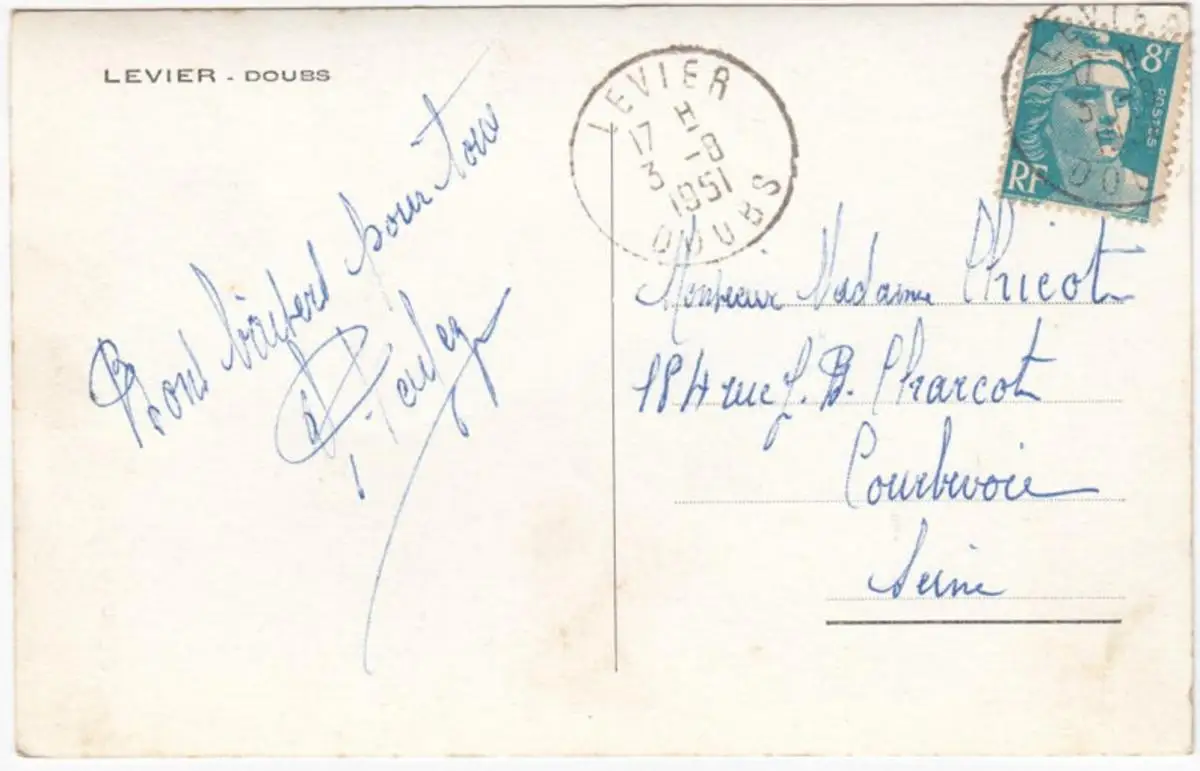 LEVIER - DOUBS
Bons baisers pour tous
LEVIER
17 H
3 -8
1951
DOUBS
8F
POSTES
RF
Monsieur Madame Chricot
184 rue J. B. Charcot
Courbevoie
Seine